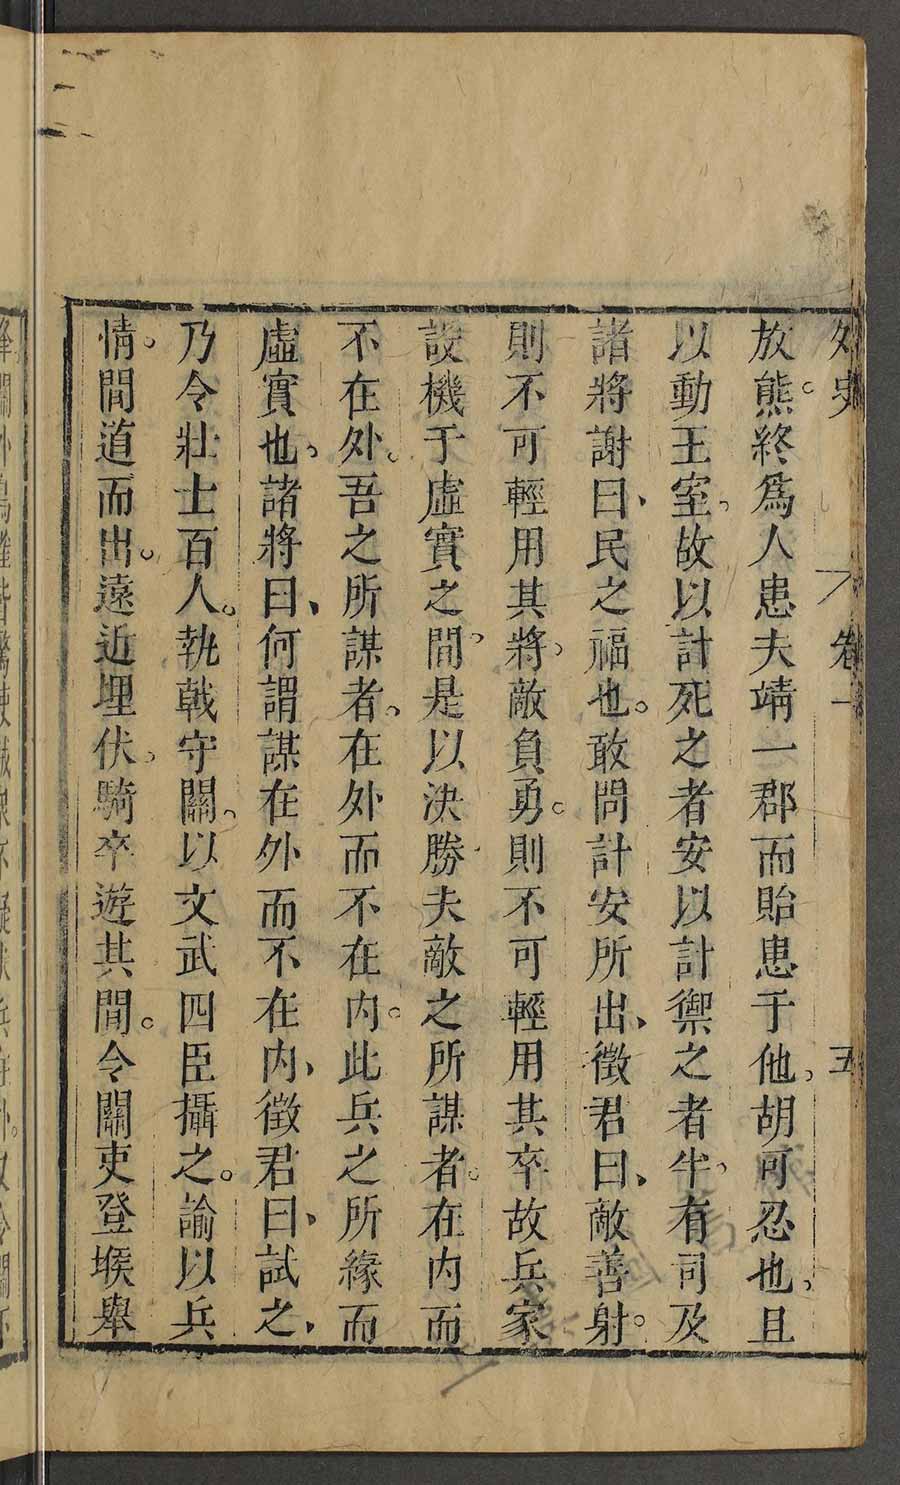 外史 卷一 五
放熊。終爲人患夫靖一郡而貽患于他、胡可忍也、且
以動王室、故以計死之者安以計禦之者半、有司及
諸將謝曰、民之福也。敢問計安所出、徵君曰、敵善射。
則不可輕用其將、敵負勇。則不可輕用其卒故兵家
設機于虛實之間、是以決勝夫敵之所謀者。在內而
不在外。吾之所謀者、在外而不在內。此兵之所緣而
虛實也、諸將曰、何謂謀在外而不在內、徵君曰、試之、
乃令壯士百人。執戟守關、以文武四臣攝之。諭以兵
情。間道而出。遠近埋伏、騎卒遊其間。令關吏登堠舉